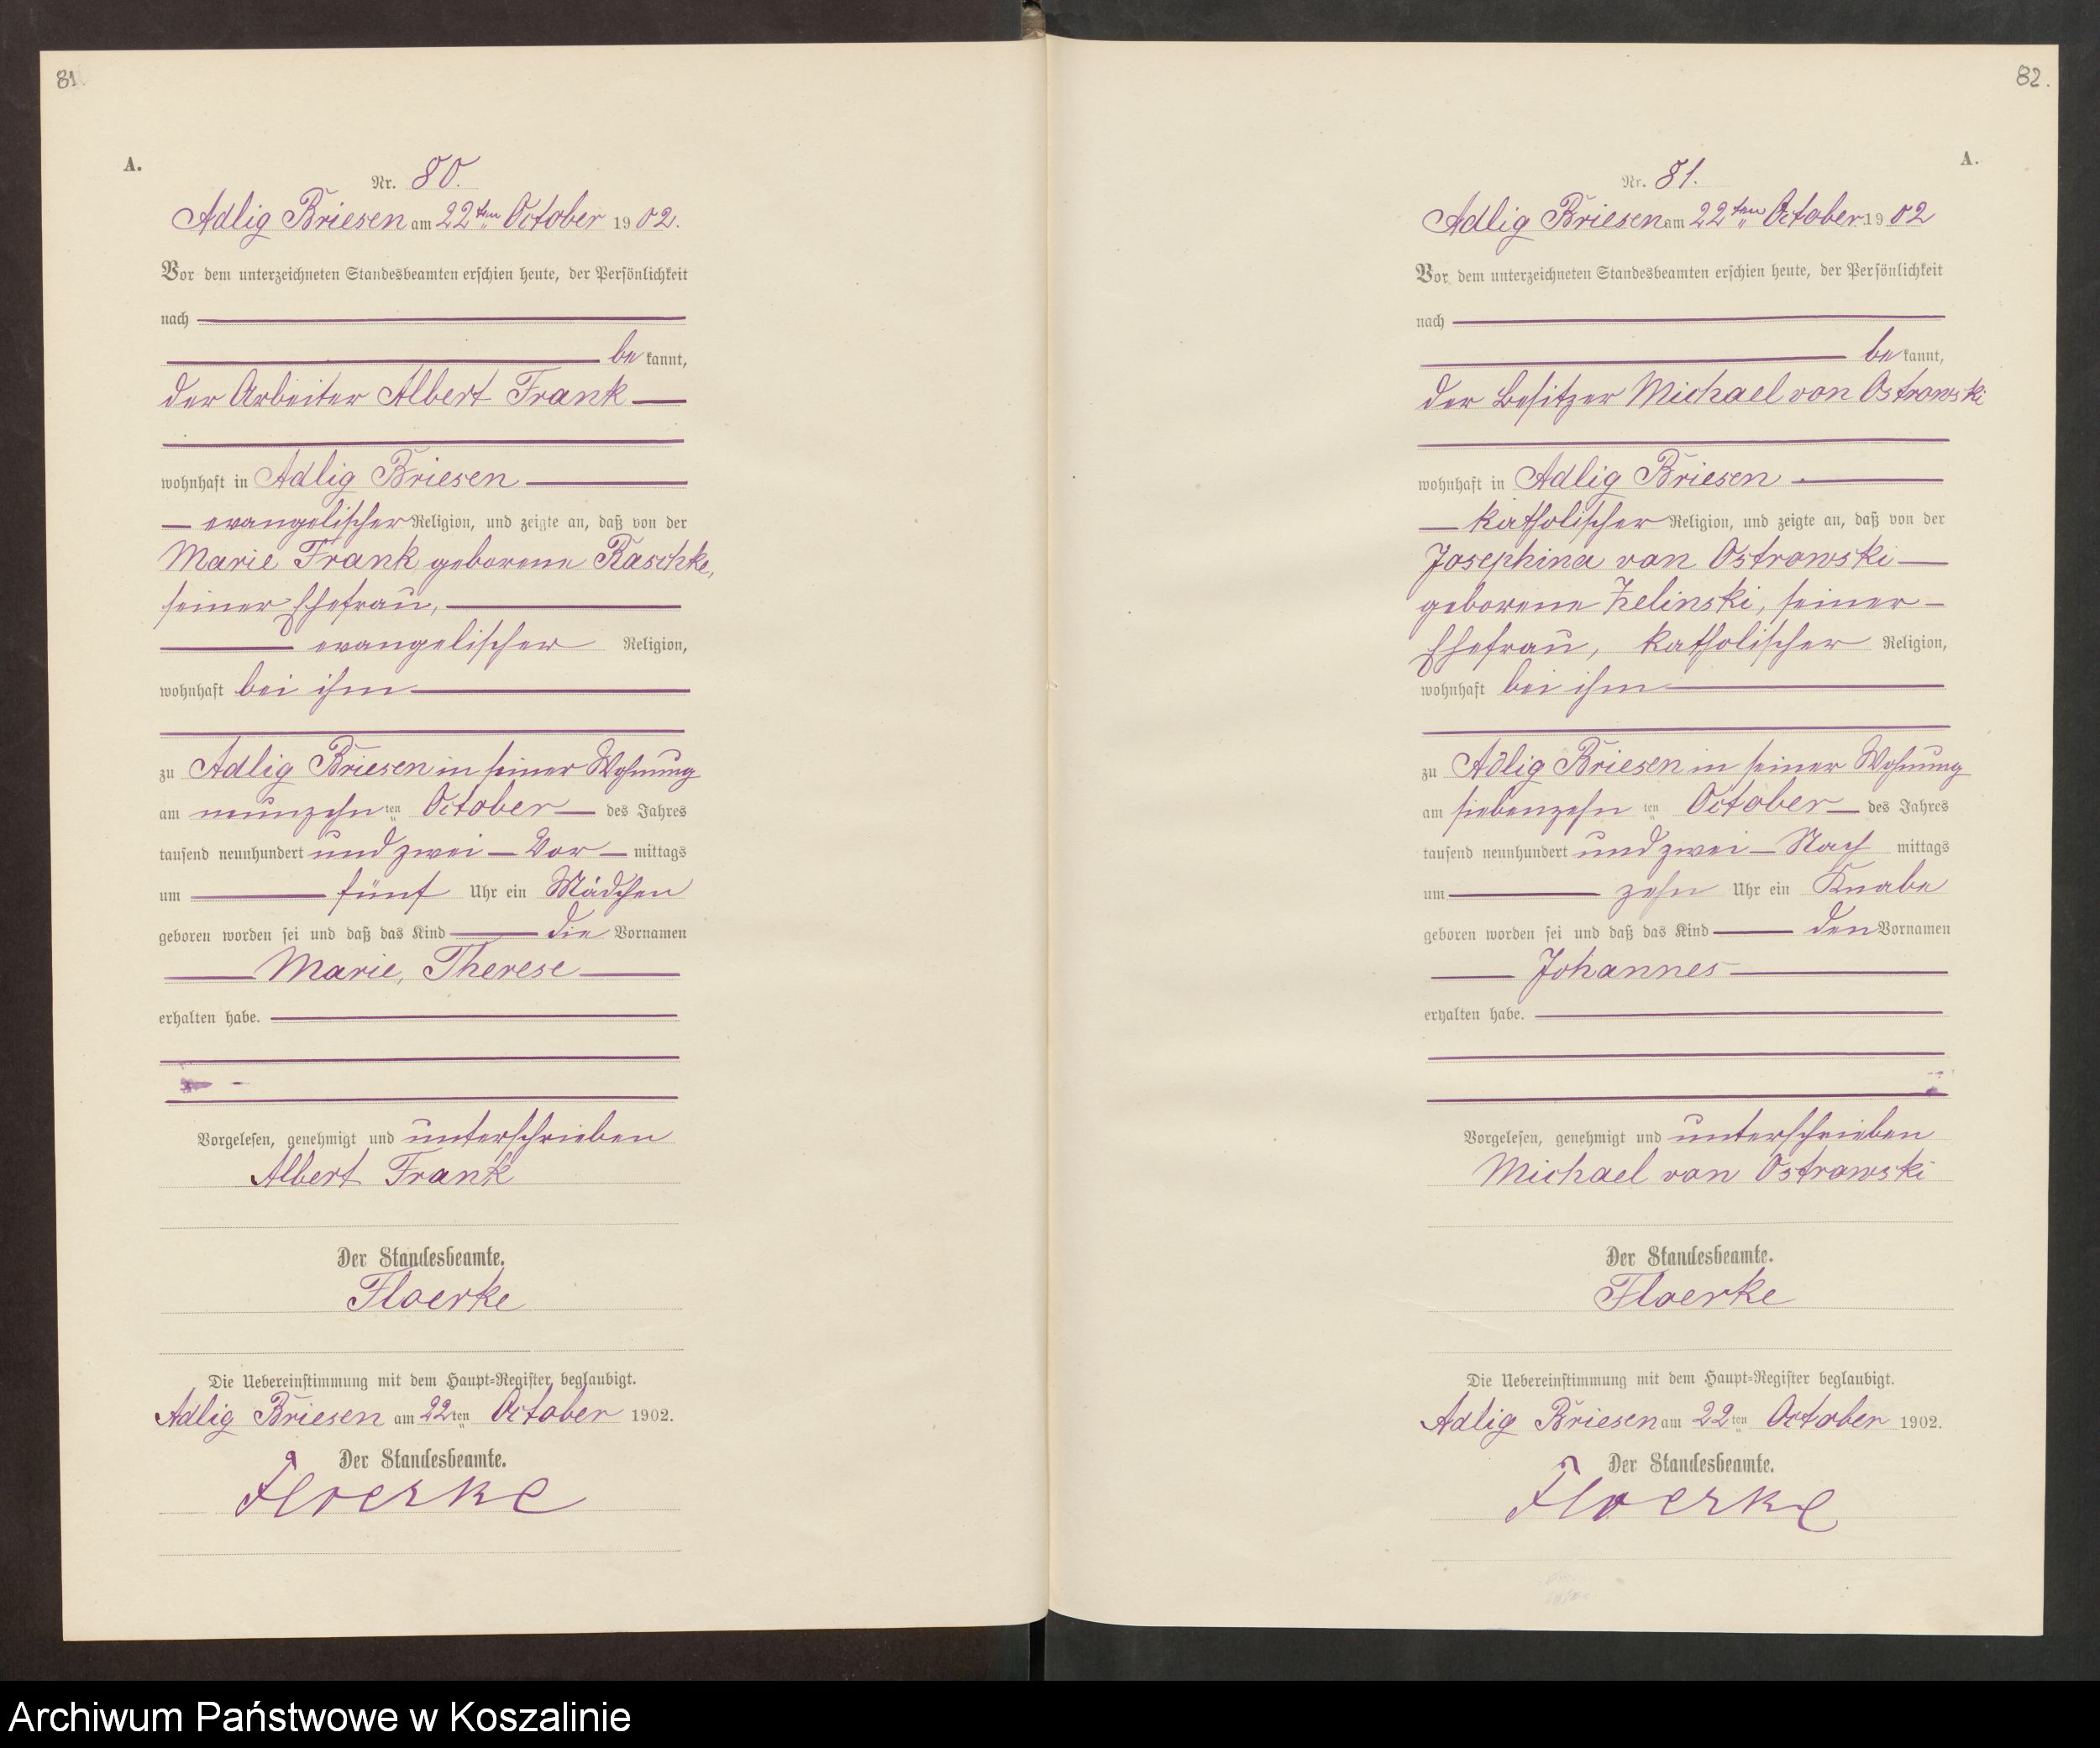 81.
A.
Nr. 80.
Adlig Briesen am 22ten October 1902.
Vor dem unterzeichneten Standesbeamten erschien heute, der Persönlichkeit
nach
be kannt,
der Arbeiter Albert Frank
wohnhaft in Adlig Briesen
evangelischer Religion, und zeigte an, daß von der
Marie Frank geborene Raschke,
seiner Ehefrau,
evangelischer Religion,
wohnhaft bei ihm
zu Adlig Briesen in seiner Wohnung
am neunzehn ten October des Jahres
tausend neunhundert und zwei Vor mittags
um fünf Uhr ein Mädchen
geboren worden sei und daß das Kind die Vornamen
Marie, Therese
erhalten habe.
Vorgelesen, genehmigt und unterschrieben
Albert Frank
Der Standesbeamte.
Floerke
Die Uebereinstimmung mit dem Haupt=Register beglaubigt.
Adlig Briesen am 22ten October 1902.
Der Standesbeamte.
Floerke
82.
A.
Nr. 81.
Adlig Briesen am 22ten October 1902
Vor dem unterzeichneten Standesbeamten erschien heute, der Persönlichkeit
nach
be kannt,
der Besitzer Michael von Ostrowski
wohnhaft in Adlig Briesen
katholischer Religion, und zeigte an, daß von der
Josephina von Ostrowski
geborene Zelinski, seiner
Ehefrau, katholischer Religion,
wohnhaft bei ihm
zu Adlig Briesen in seiner Wohnung
am siebenzehn ten October des Jahres
tausend neunhundert und zwei Nach mittags
um zehn Uhr ein Knabe
geboren worden sei und daß das Kind den Vornamen
Johannes
erhalten habe.
Vorgelesen, genehmigt und unterschrieben
Michael von Ostrowski
Der Standesbeamte.
Floerke
Die Uebereinstimmung mit dem Haupt=Register beglaubigt.
Adlig Briesen am 22ten October 1902.
Der Standesbeamte.
Floerke
Archiwum Państwowe w Koszalinie